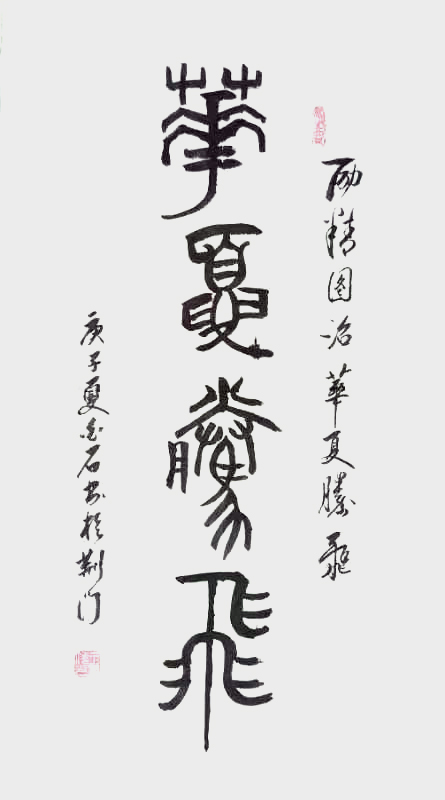 励精图治華夏騰飛
華夏騰飛
庚子夏金石书於荆门